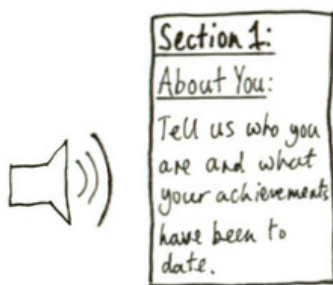 Section 1:
About You:
Tell us who you
are and what
your achievements
have been to
date.